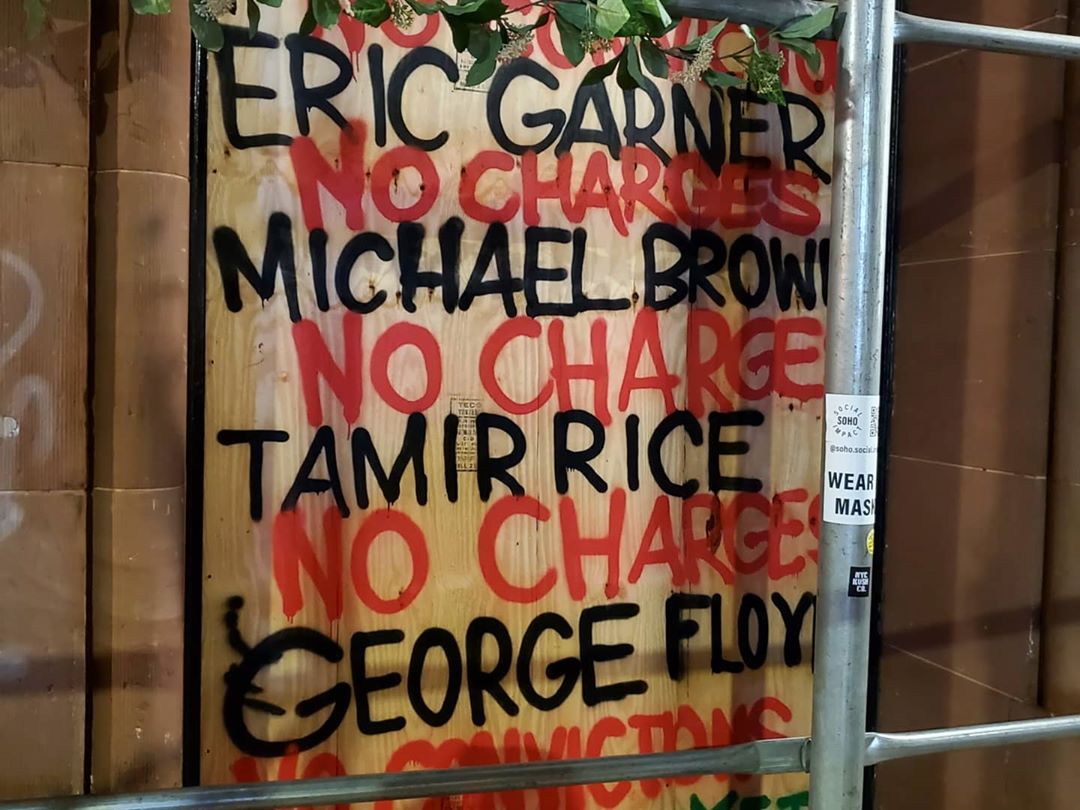 NO
ERIC GARNER
NO CHARGES
MICHAEL BROWN
NO CHARGE
TAMIR RICE
NO CHARGES
GEORGE FLOY
NO CONVICTIONS
YET
SOCIAL
SOHO
IMPACT
@soho.social
WEAR
MASK
NYC
KUSH
CO.
TECO